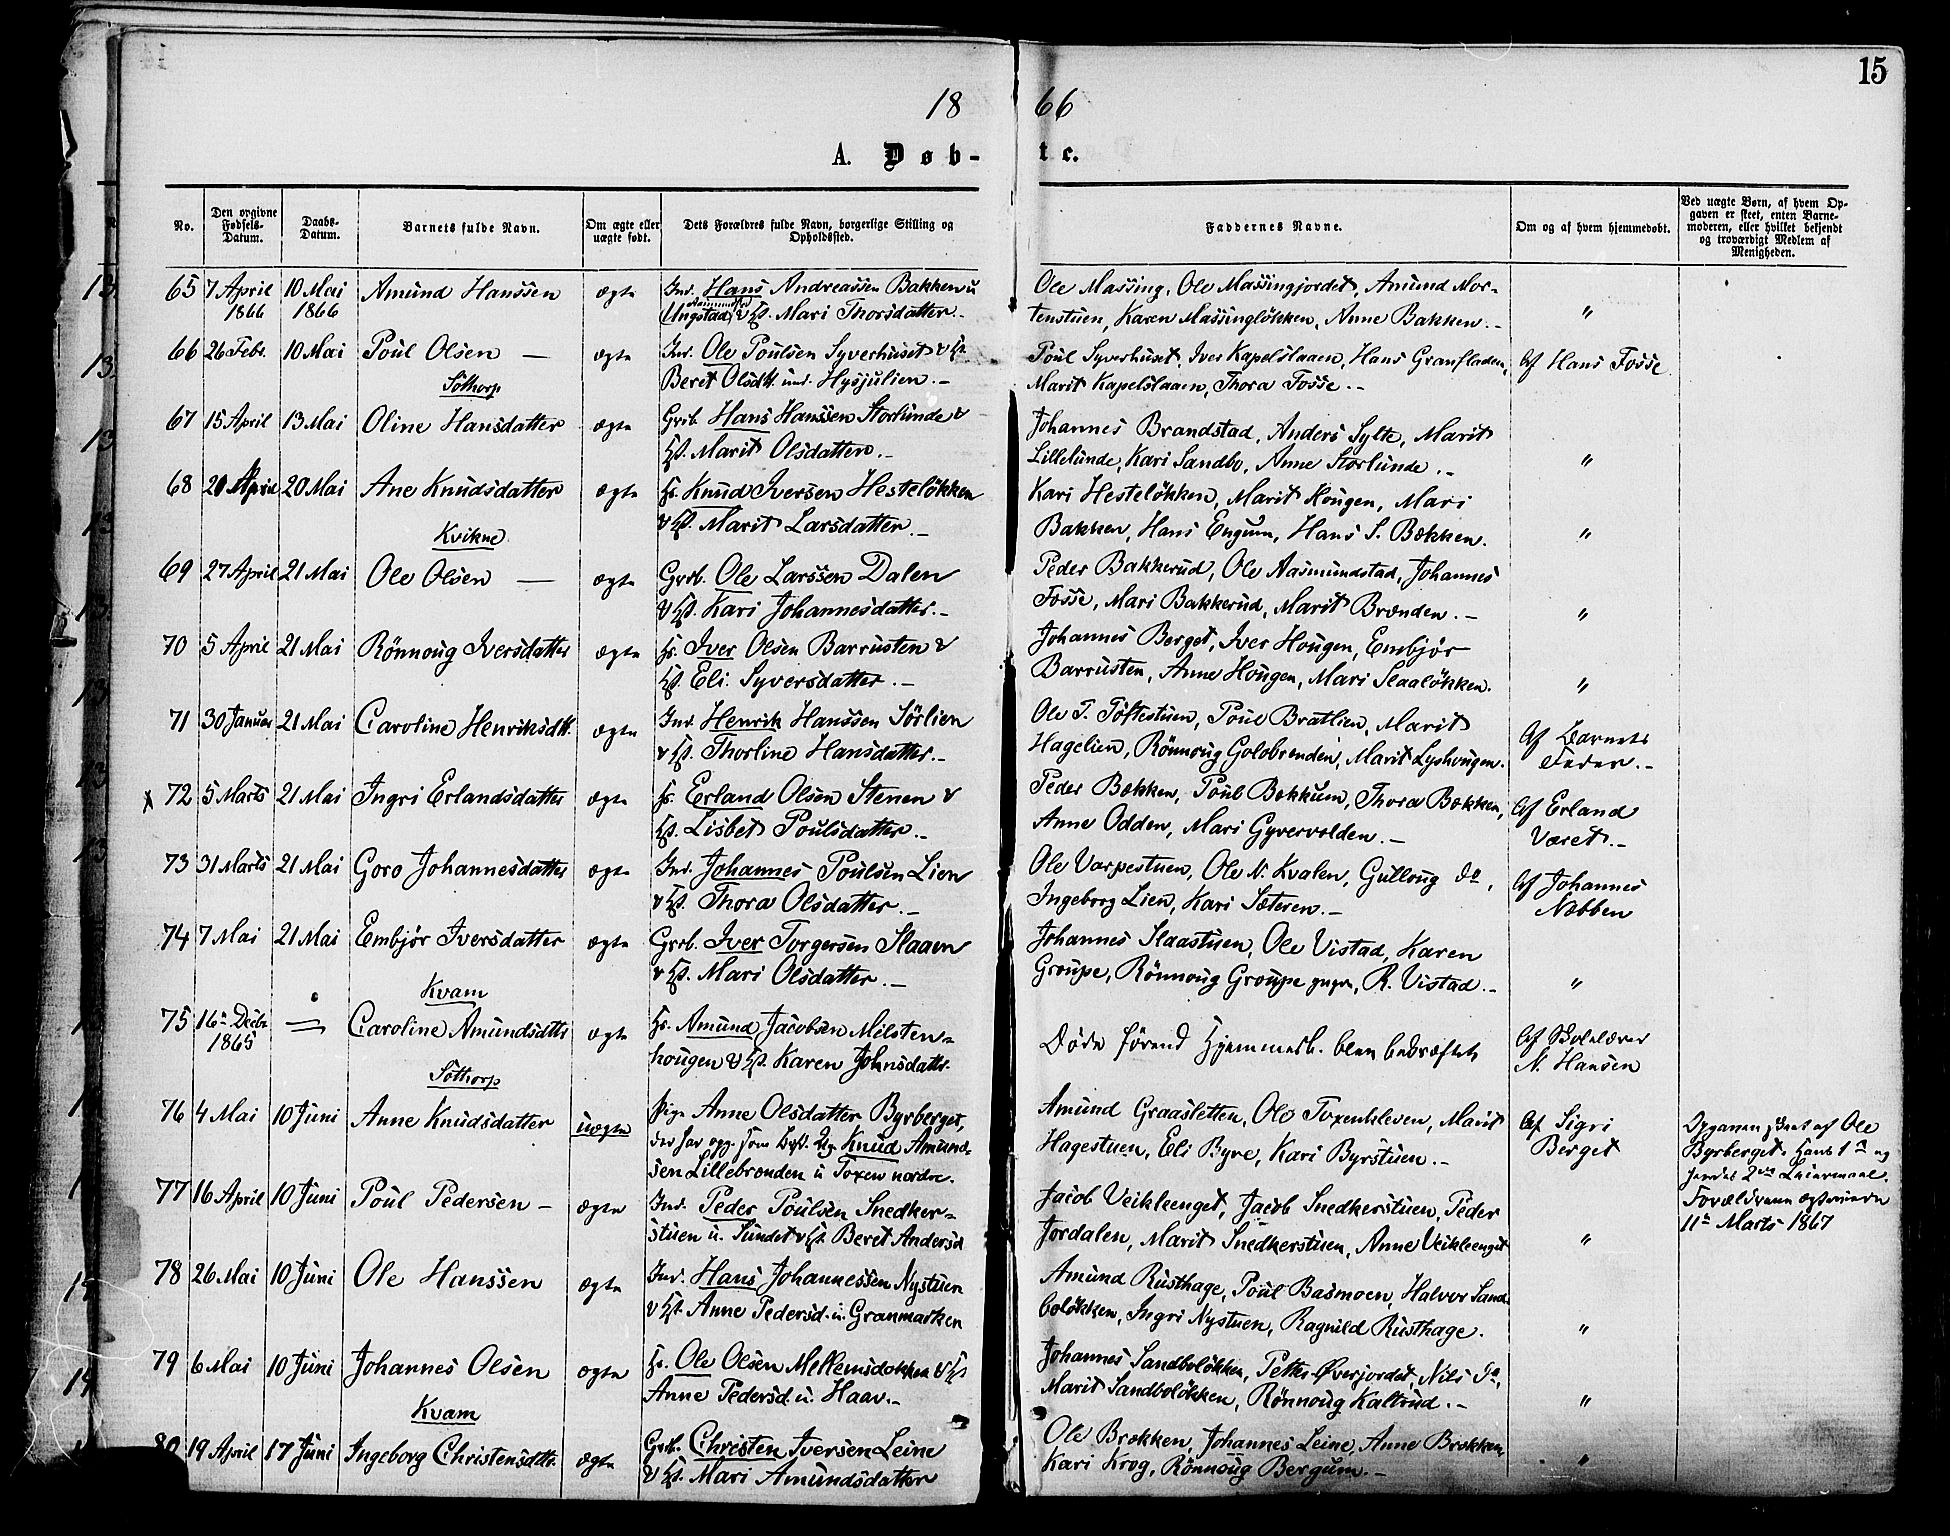 15
18 66
A. Døb- te.
No.
Den opgivne Fødsels-Datum.
Daabs-Datum.
Barnets fulde Navn.
Om ægte eller uægte født.
Dets Forældres fulde Navn, borgerlige Stilling og Opholdssted.
Faddernes Navne.
Om og af hvem hjemmedøbt.
Ved uægte Børn, af hvem Opgaven er skeet, enten Barnemoderen, eller hvilket bekjendt og troværdigt Medlem af Menigheden.
65 7 April 10 Mai Amund Hanssen ægte Ind. Hans Andreassen Bakken u Ole Massing, Ole Massingjordet, Amund Mor-
1866 1866 Ungstad & Hst. Mari Thorsdatter.- tenstuen, Karen Massingløkken, Anne Bakken.- "
66 26 Febr. 10 Mai Poul Olsen — ægte Ind. Ole Poulsen Syverhuset & Hst. Poul Syverhuset, Iver Kapelslaaen, Hans Granfladen, Af Hans Fosse
Beret Olsdtt. und. Hysjulien.- Marit Kapelslaaen, Thora Fosse.-
Söthorp
67 15 April 13 Mai Oline Hansdatter ægte Grb. Hans Hanssen Storlunde & Johannes Brandstad, Anders Sylte, Marit
Hst. Marit Olsdatter.- Lillelunde, Kari Sandbo, Anne Storlunde.- "
68 20 April 20 Mai Ane Knudsdatter ægte Hs. Knud Iversen Hesteløkken Kari Hesteløkken, Marit Hougen, Mari
& Hst. Marit Larsdatter.- Bakken, Hans Engum, Hans S. Bækken. "
Kvikne
69 27 April 21 Mai Ole Olsen — ægte Grb. Ole Larssen Dalen Peder Bakkerud, Ole Aasmundstad, Johannes
& Hst. Kari Johannesdatter.- Fosse, Mari Bakkerud, Marit Brænden.- "
70 5 April 21 Mai Rönnoug Iversdatter ægte Hs. Iver Olsen Barrusten & Johannes Berget, Iver Hougen, Embjør
Hst. Eli Syversdatter.- Barrusten, Anne Hougen, Mari Slaaløkken. "
71 30 Januar 21 Mai Caroline Henriksdtt. ægte Ind. Henrik Hanssen Sørlien Ole T. Toftestuen, Poul Bratlien, Marit Af Barnets
& Hst. Thorline Hansdatter.- Hagelien, Rönnoug Golobrenden, Marit Lyshougen. Fader.-
72 5 Marts 21 Mai Ingri Erlandsdatter ægte Hs. Erland Olsen Stenen & Peder Bækken, Poul Bækkum, Thora Bækken, Af Erland
Hst. Lisbet Poulsdatter.- Anne Odden, Mari Gyvervolden.- Været.-
73 31 Marts 21 Mai Goro Johannesdatter ægte Ind. Johannes Poulsen Lien Ole Varpestuen, Ole N. Kvalen, Gulloug do, Af Johannes
& Hst. Thora Olsdatter.- Ingeborg Lien, Kari Sæteren.- Næbben
74 7 Mai 21 Mai Embjör Iversdatter ægte Grb. Iver Torgersen Slaaen Johannes Slaastuen, Ole Vistad, Karen
& Hst. Mari Olsdatter.- Groupe, Rönnoug Groupe, R. Vistad.- "
Kvam
75 16de Decbr. — Caroline Amundsdtter ægte Hs. Amund Jacobsen Milsten- Døde førend Hjemmed. blev bekræftet Af Skolelærer
1865 hougen & Hst. Karen Johnsdattr. N. Hansen
Söthorp
76 4 Mai 10 Juni Anne Knudsdatter uægte Pige Anne Olsdatter Byrberget, Amund Graasletten, Ole Toxenkleven, Marit Af Sigri Opgaven skeet af Ole
der har opg. som Bf. Ug. Knud Amund- Hagestuen, Eli Byre, Kari Byrstuen.- Berget Byrberget. Hans 1ste og
sen Lillebrenden u Toxen nordre. hendes 2det Leiermaal.
77 16 April 10 Juni Poul Pedersen — ægte Ind. Peder Poulsen Snedker- Jacob Veikleenget, Jacob Snedkerstuen, Peder Forældrene ægteviede
stuen u. Sundet & Hst. Beret Andersd Jordalen, Marit Snedkerstuen, Anne Veikleenget " 11te Marts 1867
78 26 Mai 10 Juni Ole Hanssen ægte Ind. Hans Johannessen Nystuen Amund Rusthage, Poul Basmoen, Halvor Sand-
& Hst. Anne Pedersd. u. Granmarken boløkken, Ingri Nystuen, Ragnild Rusthage. "
79 6 Mai 10 Juni Johannes Olsen ægte Hs. Ole Olsen Mellemsdokken & Hst Johannes Sandboløkken, Petter Øverjordet, Nils Do,
Anne Pedersd. u. Haav.- Marit Sandboløkken, Rönnoug Kaltrud.- "
Kvam
80 19 April 17 Juni Ingeborg Christensdtr. ægte Grb. Christen Iversen Leine Ole Brækken, Johannes Leine, Anne Brækken,
& Hst. Mari Amundsdatter Kari Krog, Rönnoug Bergum.- "